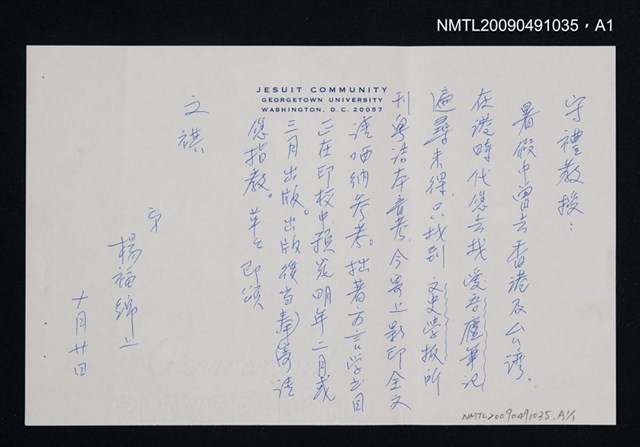 NMTL20090491035,A1
JESUIT COMMUNITY
GEORGETOWN UNIVERSITY
WASHINGTON, D.C. 20057
守禮教授：
暑假中曾去香港及台灣。
在港時代您去找 愛吾廬筆記
遍尋未得,只找到 文史學報所
刊粵語本音考,今寄上影印全文
請哂納參考。拙著方言學書目
正在印校中預定明年二月或
三月出版。出版後當奉寄請
您指教。草々 即頌
文祺
弟
楊福綿上
十月廿日
NMTL20090491035.A1/1